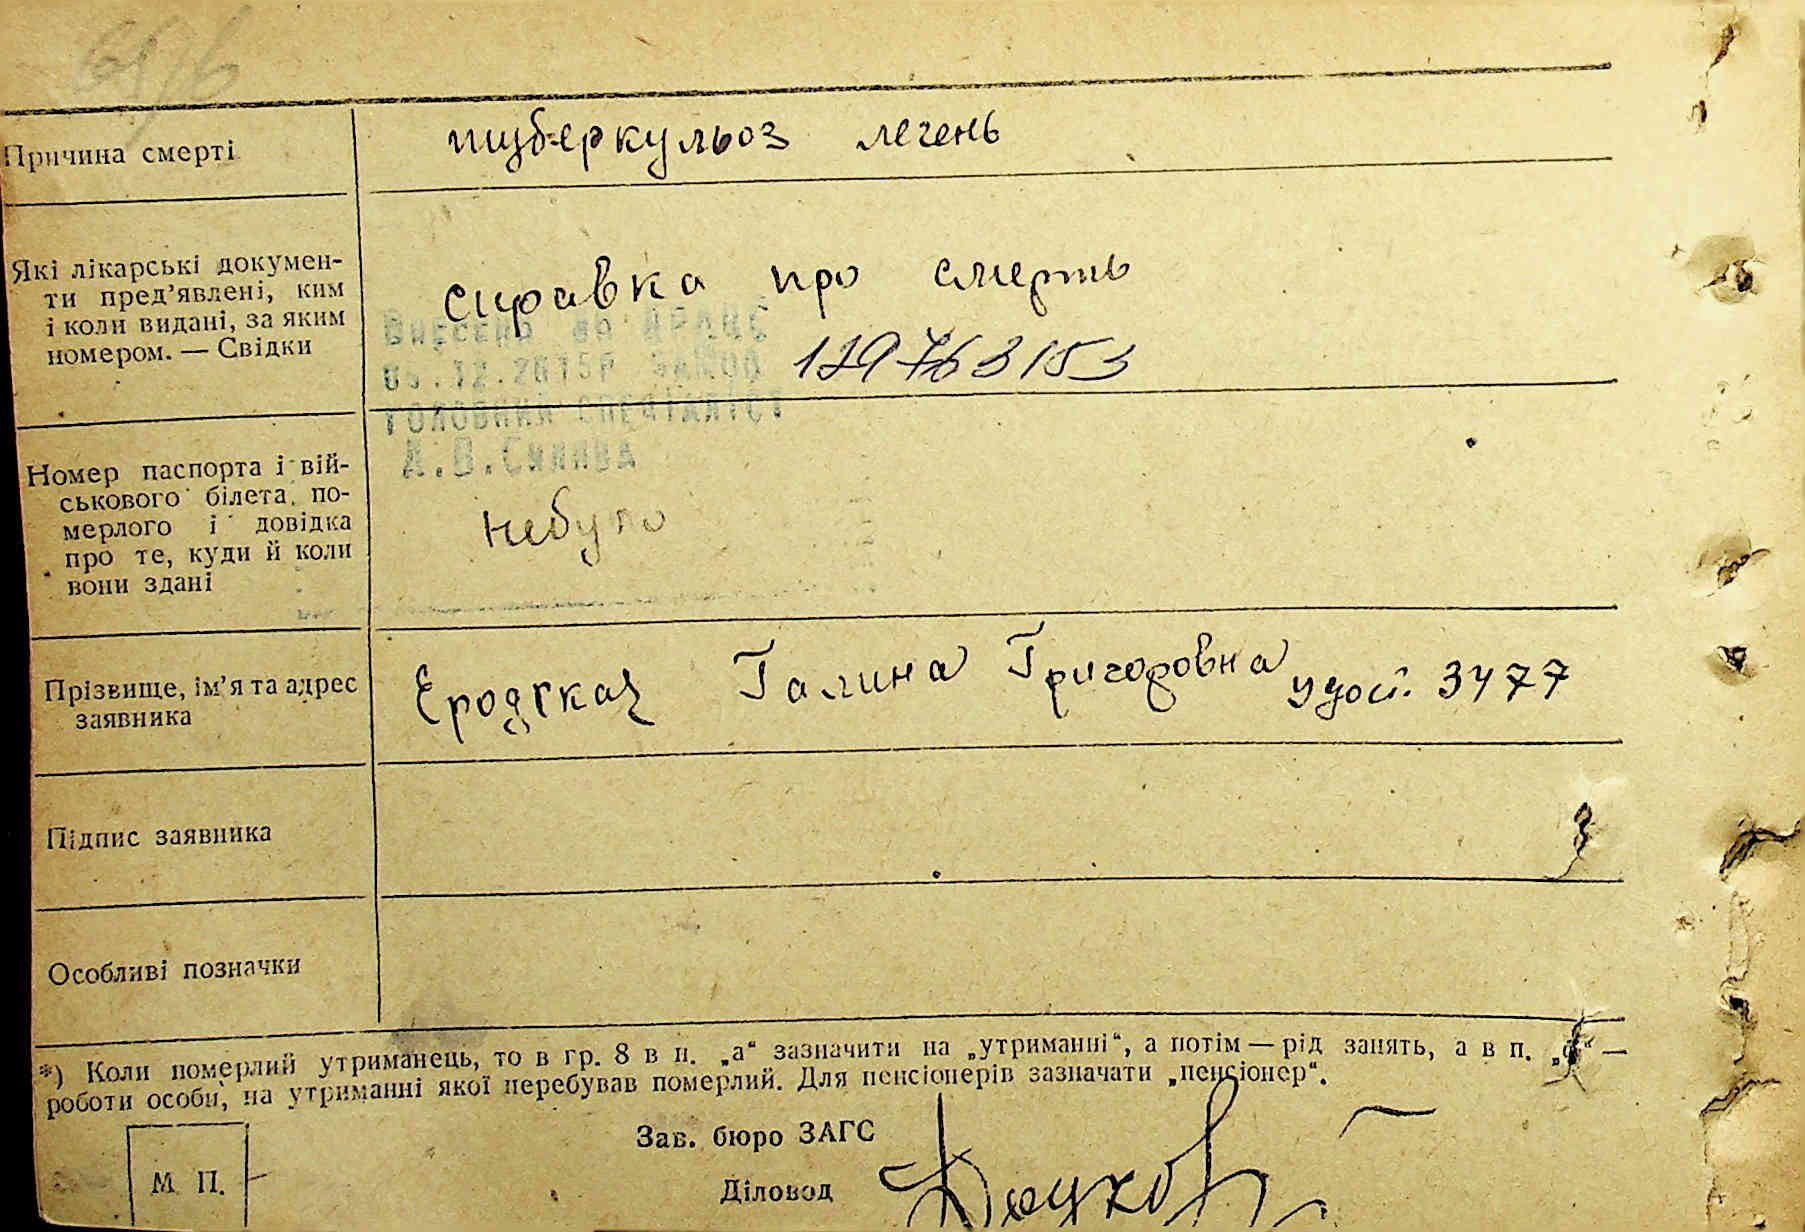 Причина смерті
туберкульоз легень
Які лікарські докумен-
ти пред’явлені, ким
і коли видані, за яким
номером. — Свідки
справка про смерть
Внесено до ДРАЦС
12.2015р
179763153
головний спеціаліст
Номер паспорта і вій-
ськового білета по-
мерлого і довідка
про те, куди й коли
вони здані
небуло
Прізвище, ім’я та адрес
заявника
Галина Григоровна удос. 3477
Підпис заявника
Особливі позначки
*) Коли померлий утриманець, то в гр. 8 в п. „а“ зазначити на „утриманні“, а потім — рід занять, а в п. —
роботи особи, на утриманні якої перебував померлий. Для пенсіонерів зазначати „пенсіонер“.
Зав. бюро ЗАГС
М. П.
Діловод